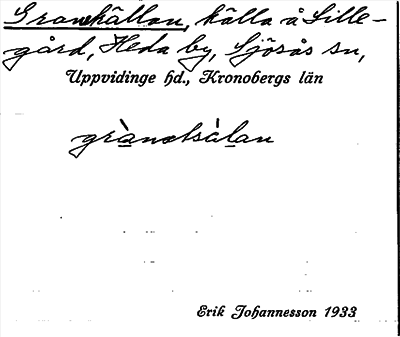 Granskällan, källa å Lille-
gård, Heda by, Sjösås sn,
Uppvidinge hd., Kronobergs län
Erik Johannesson 1933